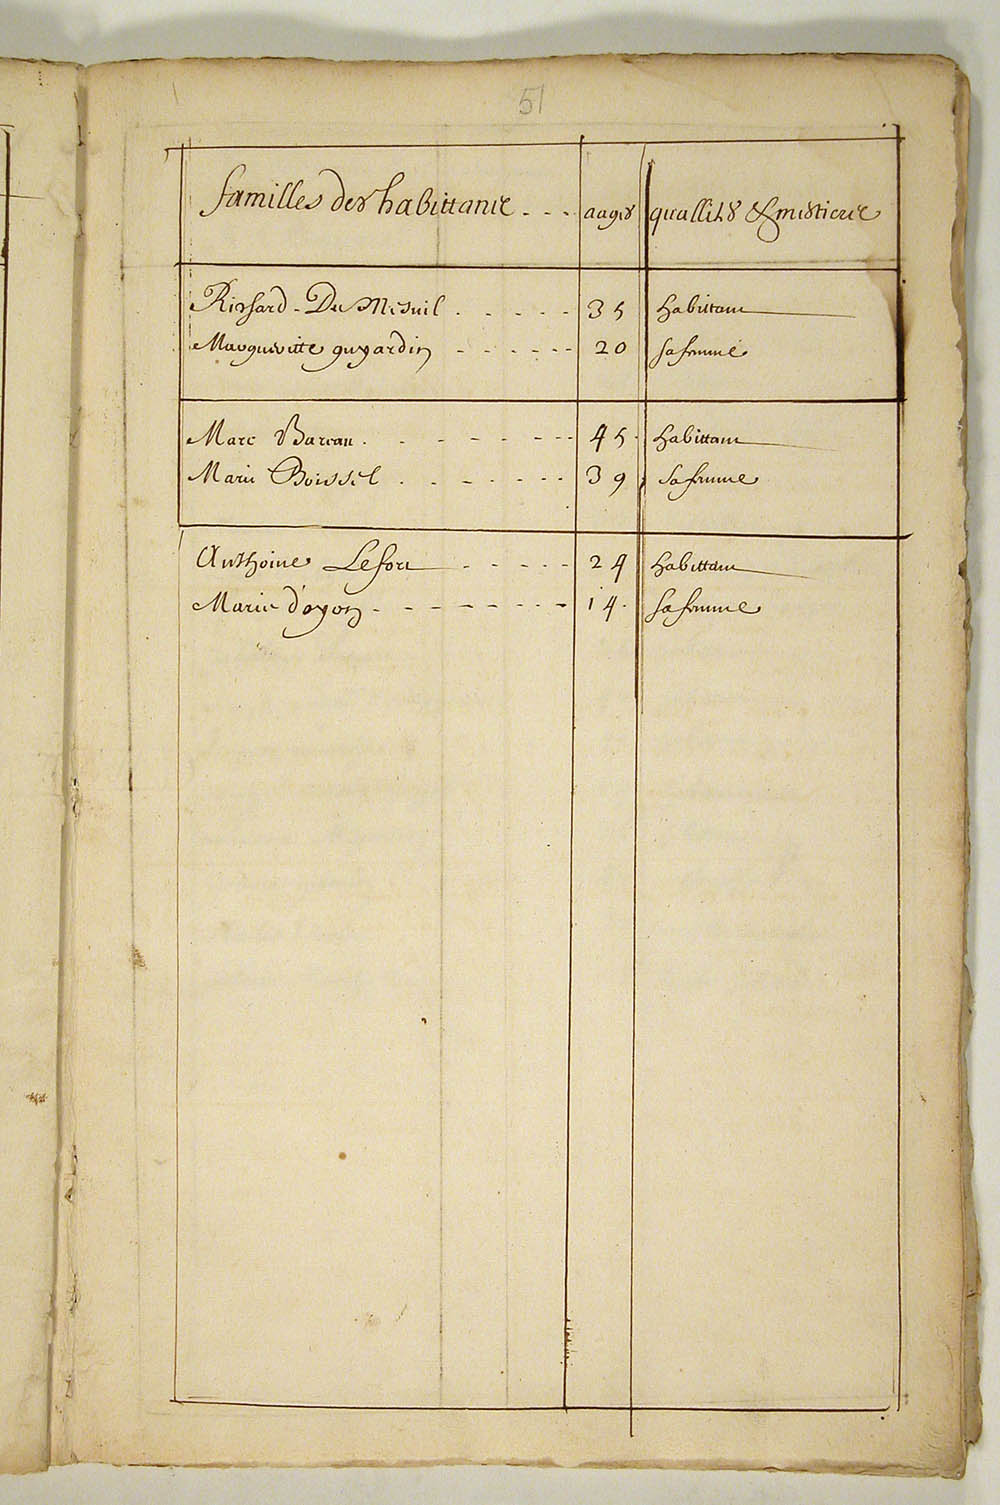 51
familles des habittans - - - aages quallités & mestiers
Richard - Du Mesnil - - - - - 35 habittant
Margueritte guyardin - - - - - 20 sa femme
Marc Bareau - - - - - - - 45 habittant
Marie Boissel - - - - - - 39 sa femme
Anthoine Lefort - - - - - 24 habittant
Marie d'oyon - - - - - - - - 14 sa femme